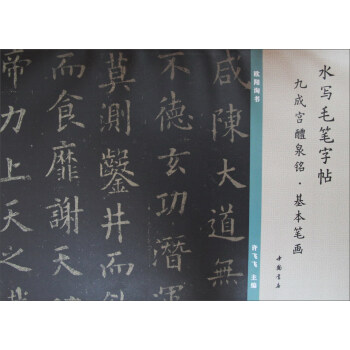 水写毛笔字帖
九成宫醴泉铭·基本笔画
中国书店
欧阳询书
许飞飞 主编
咸陳大道無
不德玄功潛
莫測鑿井而
而食靡謝天
帝力上天之